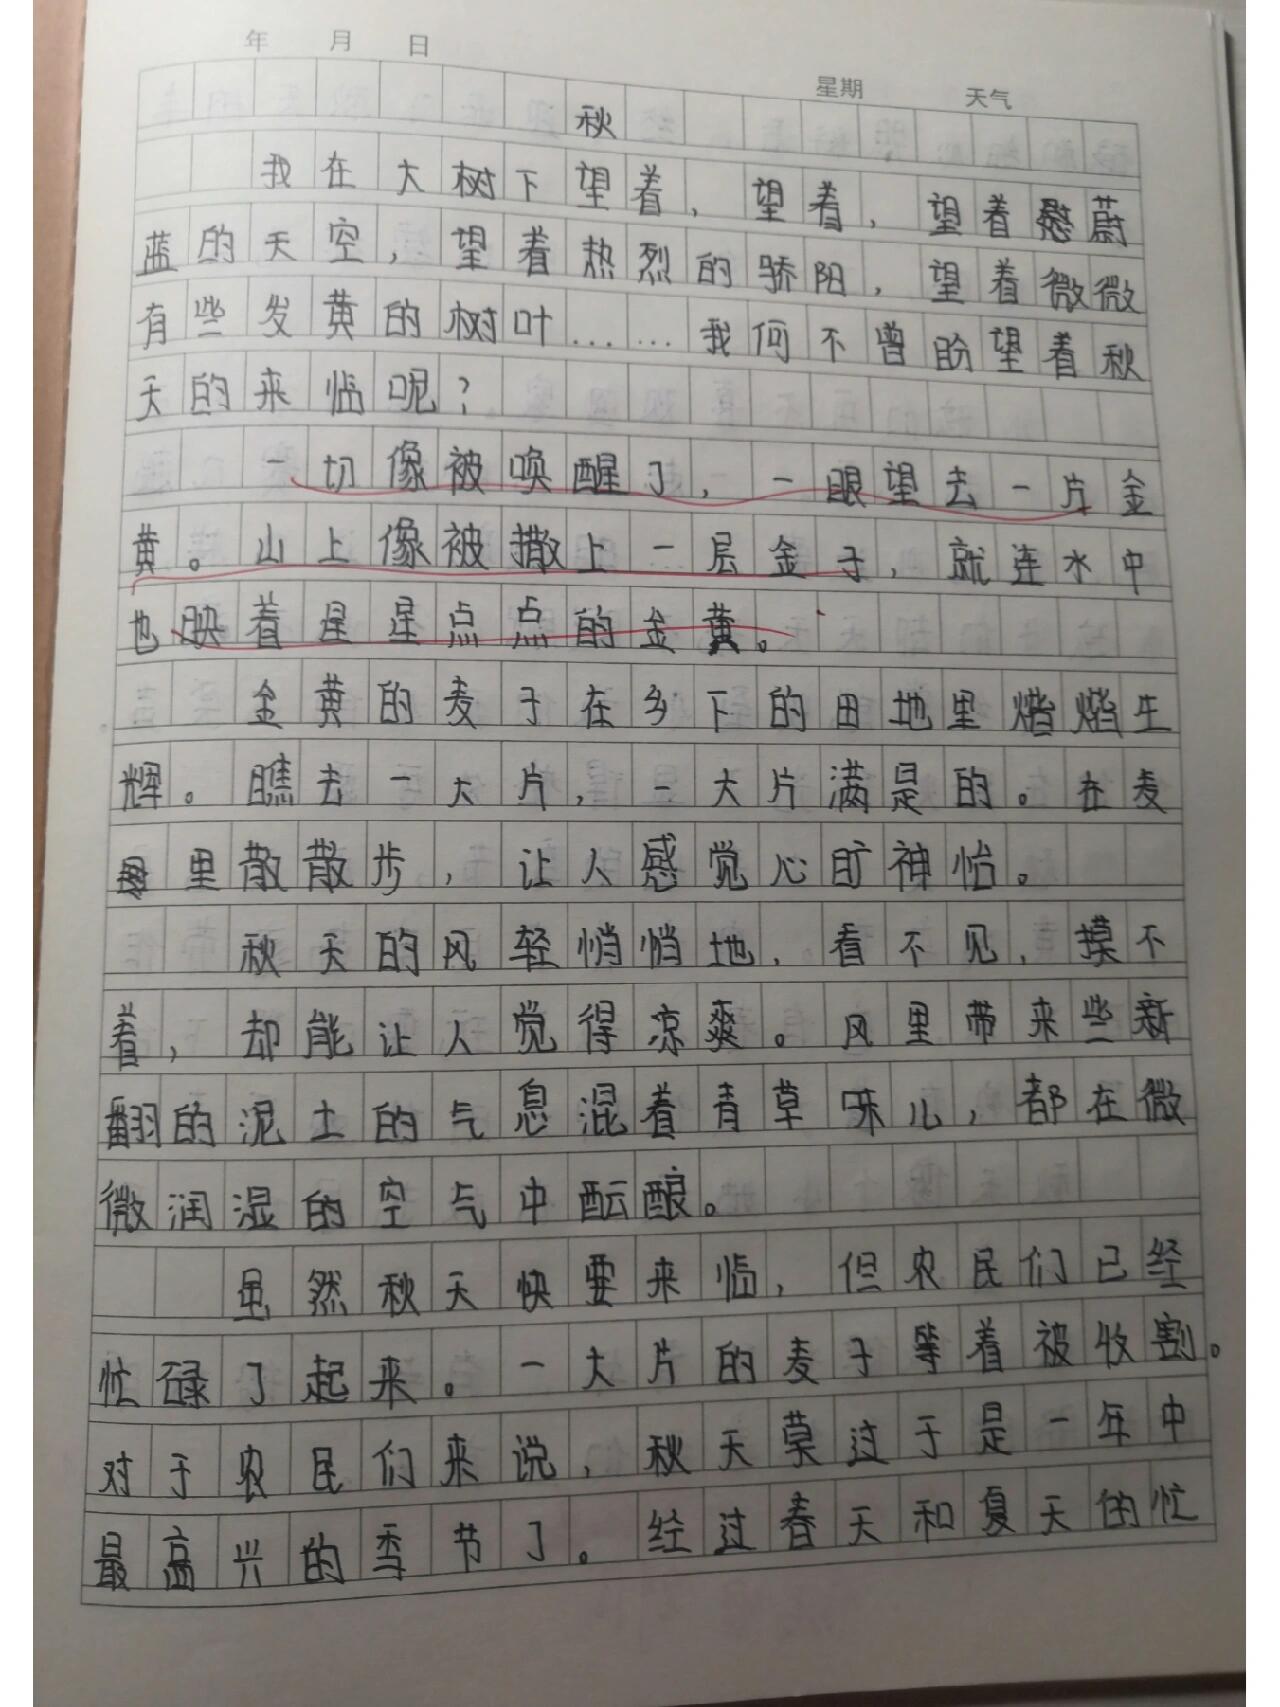 年 月 日
星期 天气
秋
我在大树下望着,望着,望着蔚
蓝的天空,望着热烈的骄阳,望着微微
有些发黄的树叶……我何不曾盼望着秋
天的来临呢?
一切像被唤醒了,一眼望去一片金
黄。山上像被撒上一层金子,就连水中
也映着星星点点的金黄。
金黄的麦子在乡下的田地里熠熠生
辉。瞧去一大片,一大片满是的。在麦
里散散步,让人感觉心旷神怡。
秋天的风轻悄悄地,看不见,摸不
着,却能让人觉得凉爽。风里带来些新
翻的泥土的气息混着青草味儿,都在微
微润湿的空气中酝酿。
虽然秋天快要来临,但农民们已经
忙碌了起来。一大片的麦子等着被收割。
对于农民们来说,秋天莫过于是一年中
最高兴的季节了。经过春天和夏天的忙